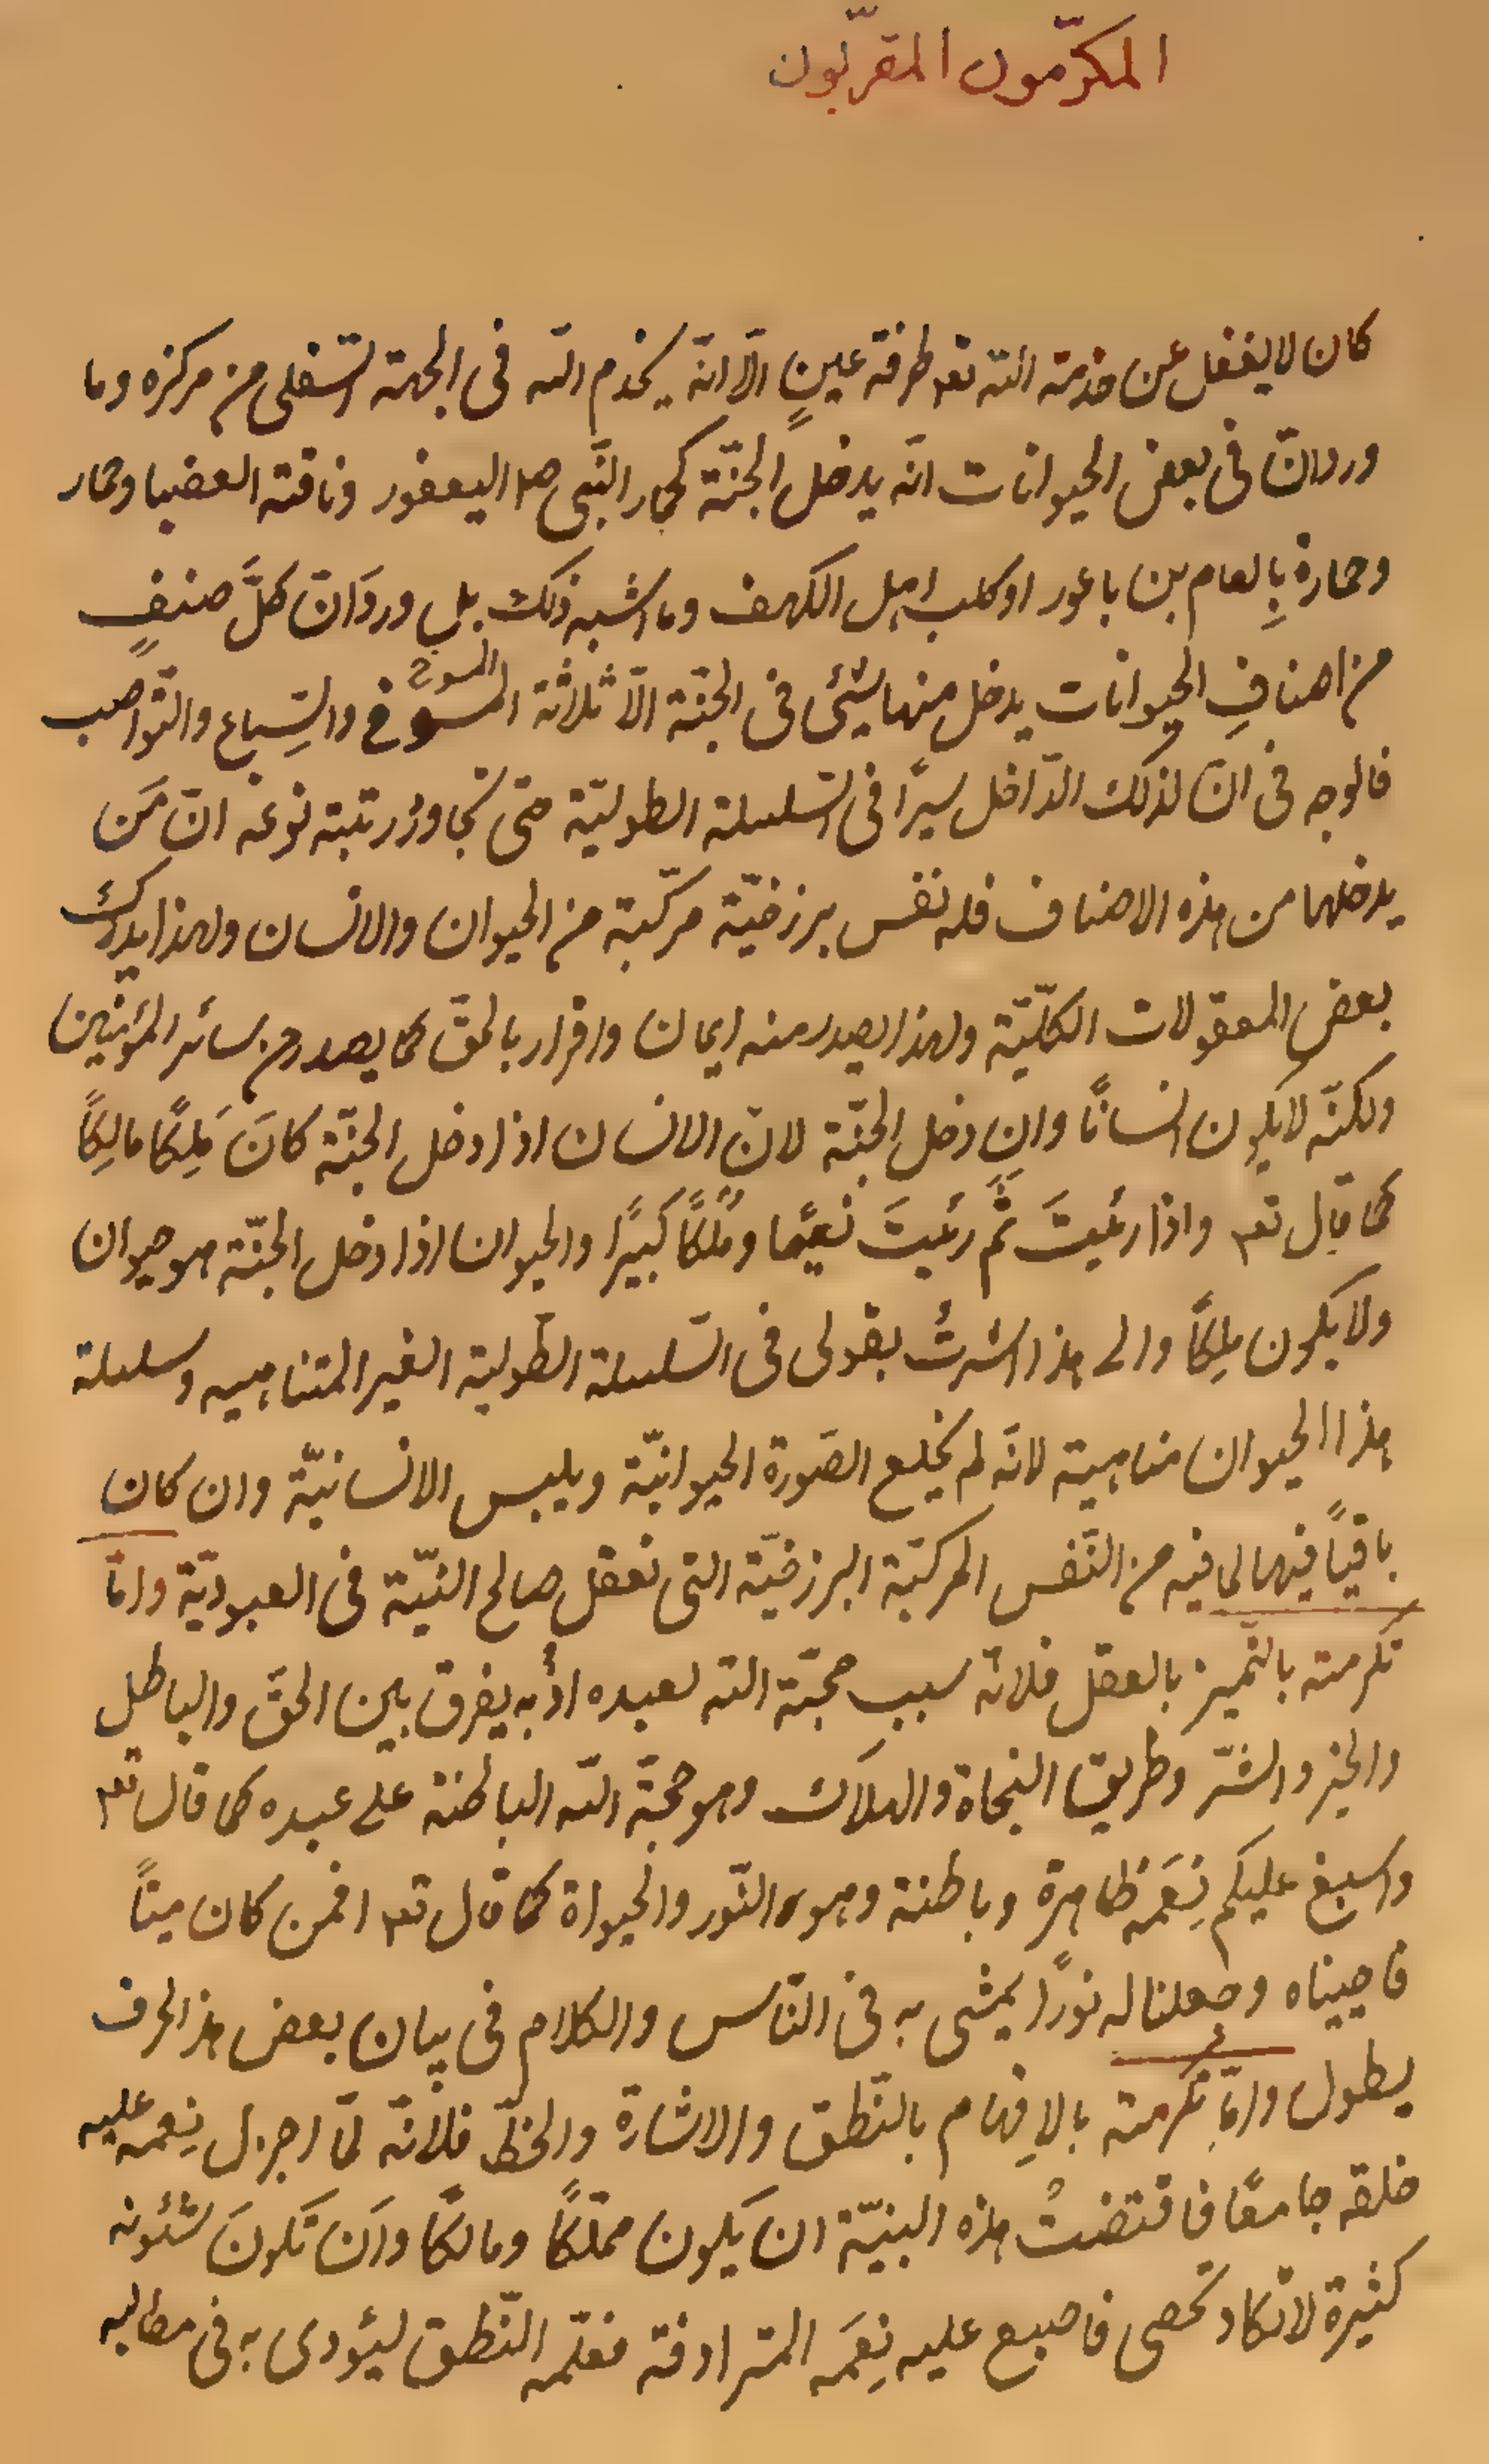 المكرّمون المقرّبون
كان لا يغفل عن خدمة الله تعه طرفة عينٍ الّا انّه يخدم الله فى الجهة السّفلى من مركزه وما
ورد انّ فى بعض الحيوانات انّه يدخل الجنّة كحمار النّبى صلا اليعفور وناقته العضبا وحمار
وحمارة بِلعام بن باعور او كلب اهل الكهف وما اشبه ذلك بل ورد انّ كلّ صنفٍ
من اصنافِ الحيوانات يدخل منها شيئى فى الجنّة الّا ثلاثة المسوخ والسّباع والنّواصب
فالوجه فى انّ لذلك الدّاخل سيرًا فى السّلسلة الطوليّة حتى تجاوز رتبة نوعه انّ مَن
يدخلها من هذه الاصناف فله نفس برزخيّة مركّبة من الحيوان والانسان ولهذا يدرك
بعض المعقولات الكلّيّة ولهذا يصدر منه ايمان واقرار بالحقّ كما يصدر من سائر المؤمنين
ولكنّه لا يكون انسانًا وان دخل الجنّة لانّ الانسان اذا دخل الجنّة كانَ مَلِكًا مالِكًا
كما قال تعه واذا رئيتَ ثَمّ رئيتَ نعيمًا ومُلكًا كبيرًا والحيوان اذا دخل الجنّة هو حيوان
ولا يكون ملِكًا والى هذا اشرتُ بقولى فى السّلسلة الطّولية الغير المتناهيه وسلسلة
هذا الحيوان متناهية لانّه لم يخلع الصّورة الحيوانيّة ويلبس الانسانيّة وان كان
باقياً فيها لما فيه من النّفس المركبّة البرزخيّة التى تعقل صالح النيّة فى العبوديّة وامّا
تكرمته بالتّميز بالعقل فلانّه سبب محبّة الله لعبده اذ به يفرق بين الحقّ والباطل
والخير والشّرّ وطريق النجاة والهلاك وهو حجّة الله الباطنة على عبده كما قال تعه
واسبغ عليكم نِعَمَه ظاهرة وباطنة وهو النّور والحيواة كما قال تعه افمن كان ميتاً
فاحييناه وجعلنا له نورًا يمشى به فى النّاس والكلام فى بيان بعض هذ الحرف
يطول وامّا تكرمته بالاِفهام بالنّطق والاشارة والخطّ فلانّه لمّا اجزل نِعمه عليه
خلقه جامعًا فاقتضتْ هذه البنيّة ان يَكون مملّكًا ومالكًا وَان تَكونَ شئونه
كثيرة لا تكاد تحصى فاصبع عليه نِعَمَه المترادفة فعلّمه النّطق ليؤدى به فى مطالبه